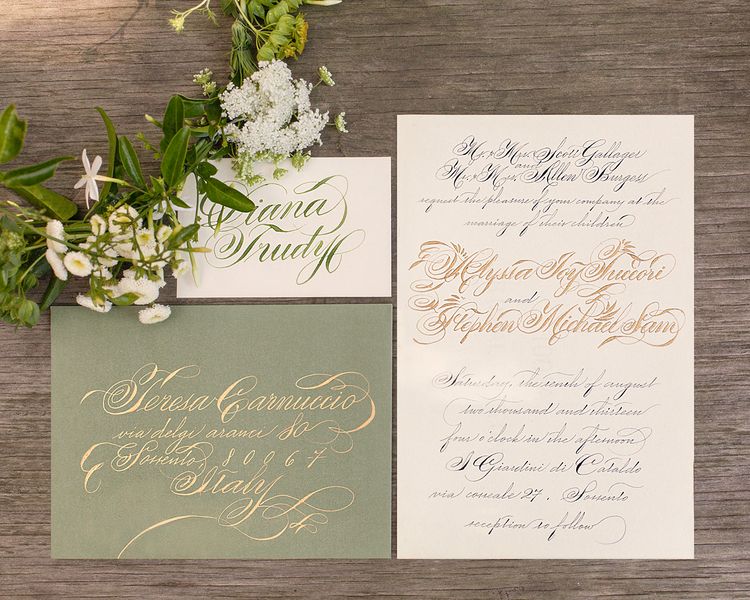 Diana
Trudy
Teresa Carnuccio
via delgi aranci 80
Sorrento, 80067
Italy
Mr. & Mrs. Scott Gallager
and
Mr. & Mrs. Allen Burgess
request the pleasure of your company at the
marriage of their children
Alyssa Joy Tuccori
and
Stephen Michael Sam
Saturday, the tenth of august
two thousand and thirteen
four o'clock in the afternoon
I Giardini di Cataldo
via correale 27, Sorrento
reception to follow